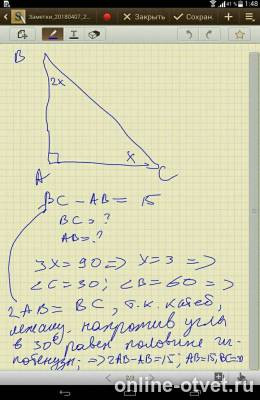 41% 1:48
Заметки_20180407_2...
Закрыть
Сохран.
B
2x
x
A
C
BC - AB = 15
BC = ?
AB = ?
3x = 90 => x = 3 =>
∠C = 30; ∠B = 60 =>
2AB = BC, т.к. катет,
лежащ. напротив угла
в 30° равен половине ги-
потенузы; => 2AB-AB=15; AB=15, BC=30
online-otvet.ru